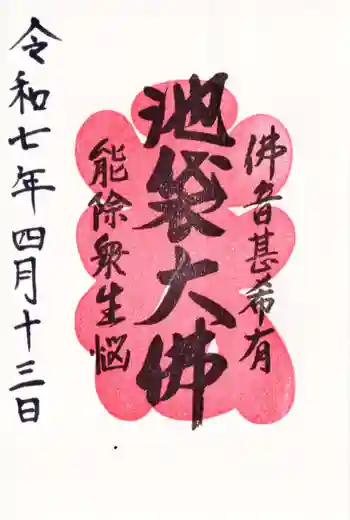 佛音甚希有
池袋大佛
能除衆生悩
令和七年四月十三日